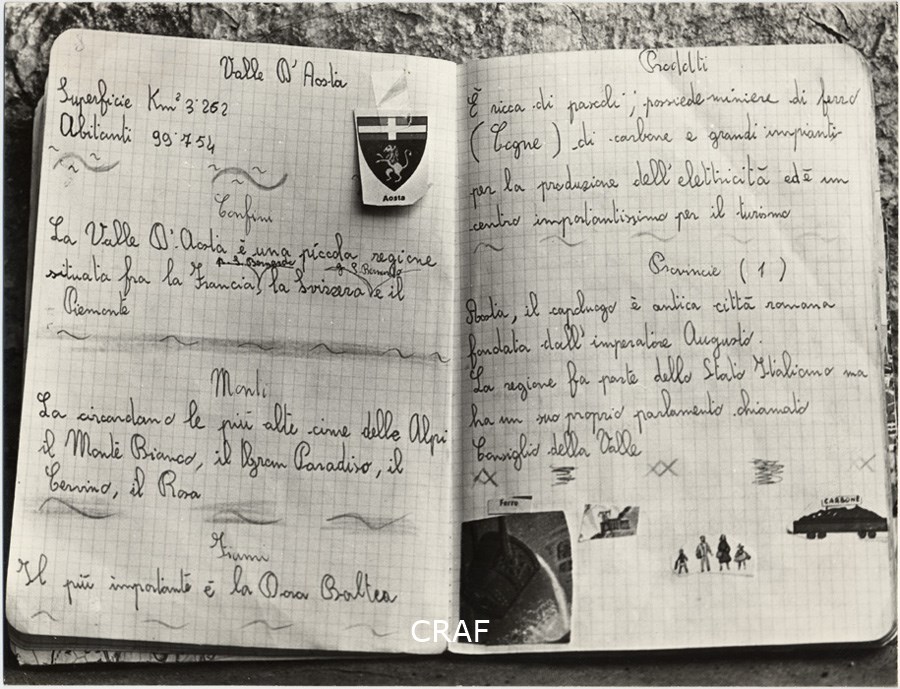 Valle D'Aosta
Superficie Km² 3.262
Abitanti 99.754
Aosta
Confini
La Valle D'Aosta è una piccola regione
situata fra la Francia, la Svizzera e il
Piemonte
Monti
La circondano le più alte cime delle Alpi
il Monte Bianco, il Gran Paradiso, il
Cervino, il Rosa
Fiumi
Il più importante è la Dora Baltea
Prodotti
È ricca di pascoli; possiede miniere di ferro
(Cogne) di carbone e grandi impianti
per la produzione dell'elettricità ed è un
centro importantissimo per il turismo
Provincie (1)
Aosta, il capoluogo è antica città romana
fondata dall'imperatore Augusto.
La regione fa parte dello Stato Italiano ma
ha un suo proprio parlamento chiamato
Consiglio della Valle
Ferro
CARBONE
CRAF